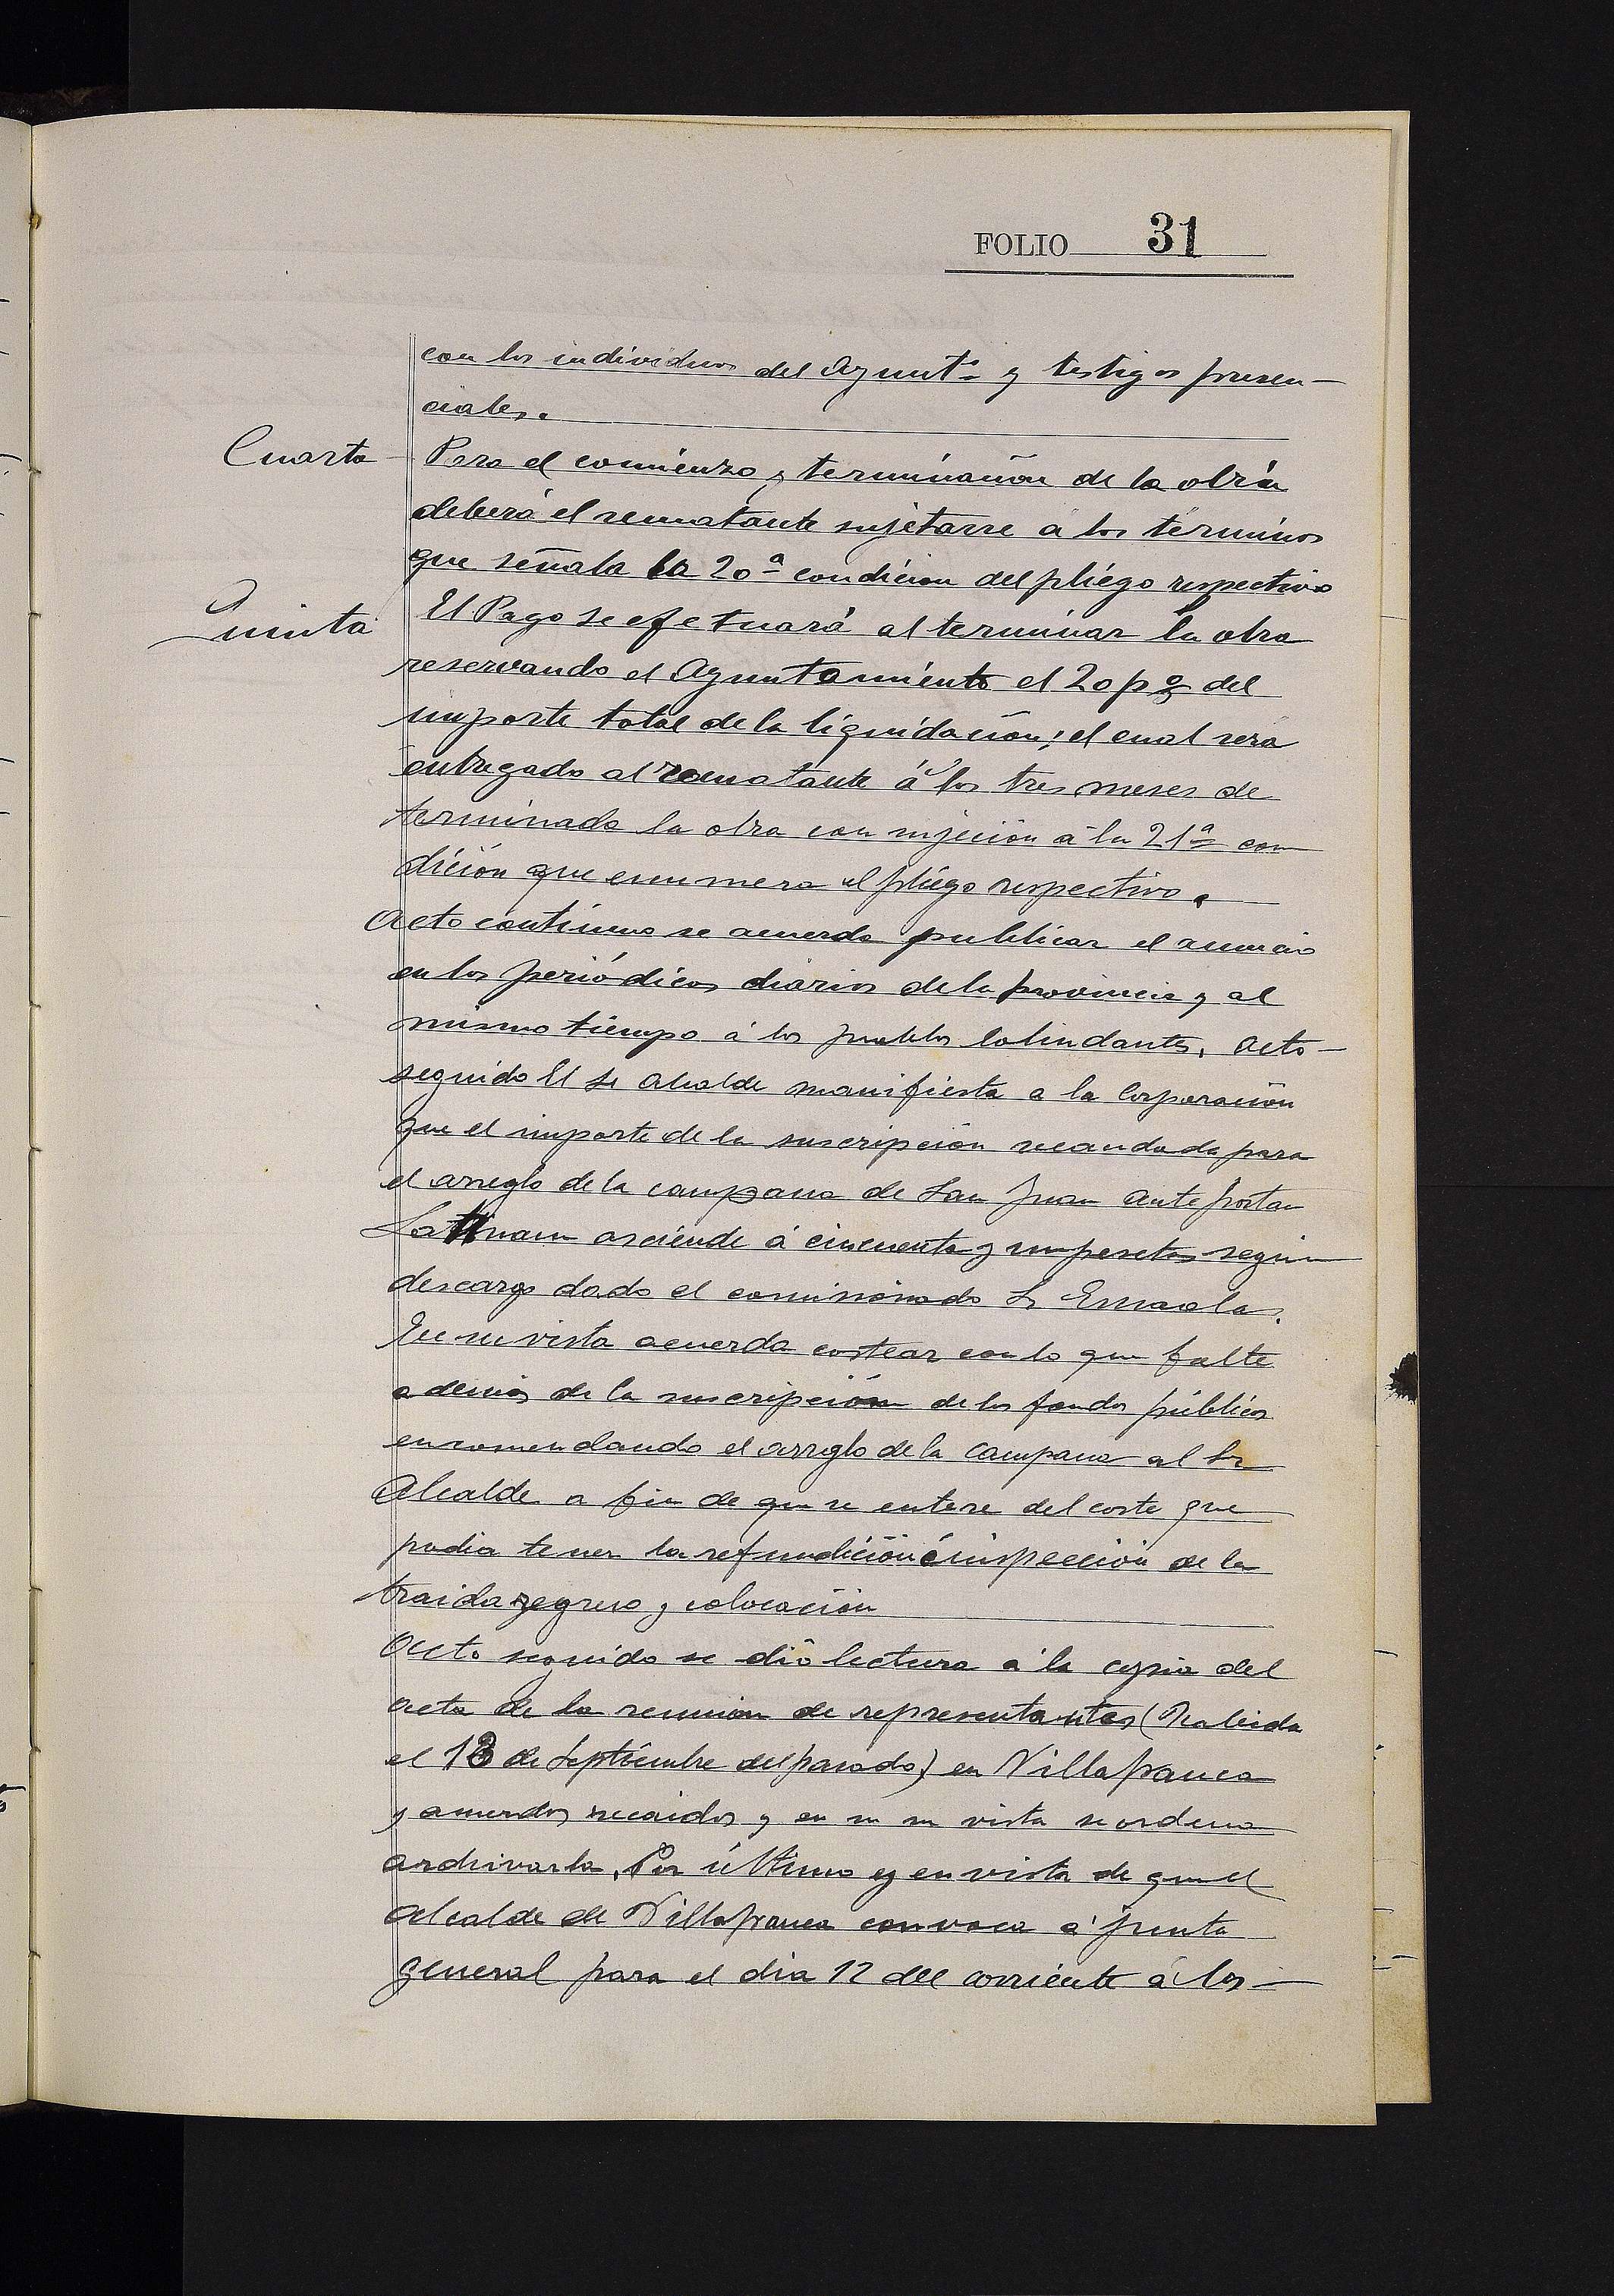 FOLIO 31
con los individuos del Ayunt.º y testigos presen-
ciales.
Cuarta Para el comienzo y terminación de la obra
deberá el rematante sujetarse á los términos
que señala la 20ª condición del pliego respectivo
Quinta El Pago se efetuará al terminar la obra
reservando el Ayuntamiento el 20 p% del
importe total de la liquidación; el cual será
entregado al rematante á los tres meses de
terminado la obra con sujeción á la 21ª con
dición que enumera el pliego respectivo.
Acto contínuo se acuerda publicar el anuncio
en los periódicos diarios de la provincia y al
mismo tiempo á los pueblos colindantes. Acto-
seguido El Sr Alcalde manifiesta a la Corporación
que el importe de la suscripción recaudada para
el arreglo de la campana de San Juan ante portan
Latinam asciende á cincuenta y un pesetas según
descargo dado el comisionado Sr
En su vista acuerda costear con lo que falte
ademas de la suscripción de los fondos públicos
encomendando el arreglo de la campana al Sr
Alcalde a fin de que se entere del coste que
podia tener la refundición é inspección de la
traida regreso y colocación
Acto seguido se dió lectura á la copia del
acta de la reunion de representantes (habida
el 13 de Septiembre del pasado) en Villafranca
y acuerdos recaidos y en su su vista se ordena
archivarla. Por último y en vista de que el
Alcalde de Villafranca convoca á junta
general para el dia 12 del corriente á los-